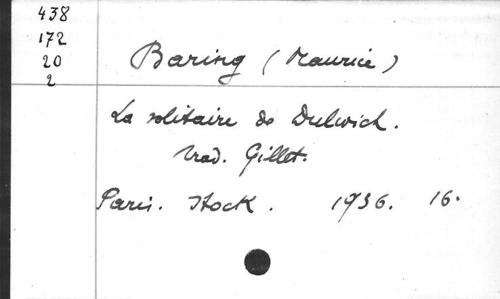 438
172
20
2
Baring (Maurice)
La solitaire de Dulwich.
trad. Gillet.
Paris. Stock. 1936. 16.